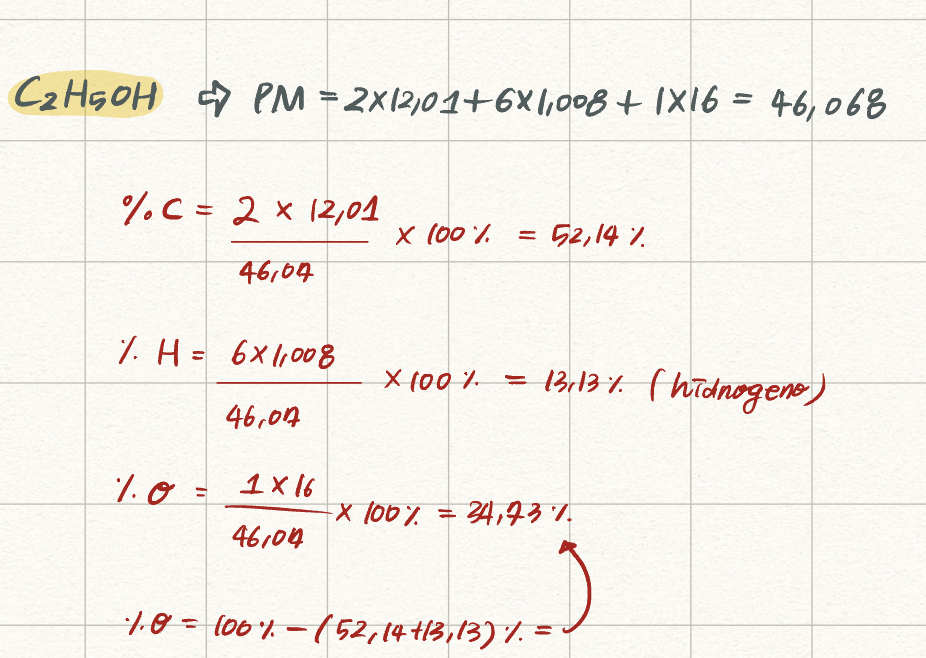 C₂H₅OH ⇨ PM = 2×12,01+6×1,008 + 1×16 = 46,068
%C = 2 × 12,01 / 46,07 × 100% = 52,14%
% H = 6×1,008 / 46,07 ×100% = 13,13% (hidrogeno)
% O = 1×16 / 46,07 × 100% = 34,73%
%O = 100% - (52,14+13,13)% =